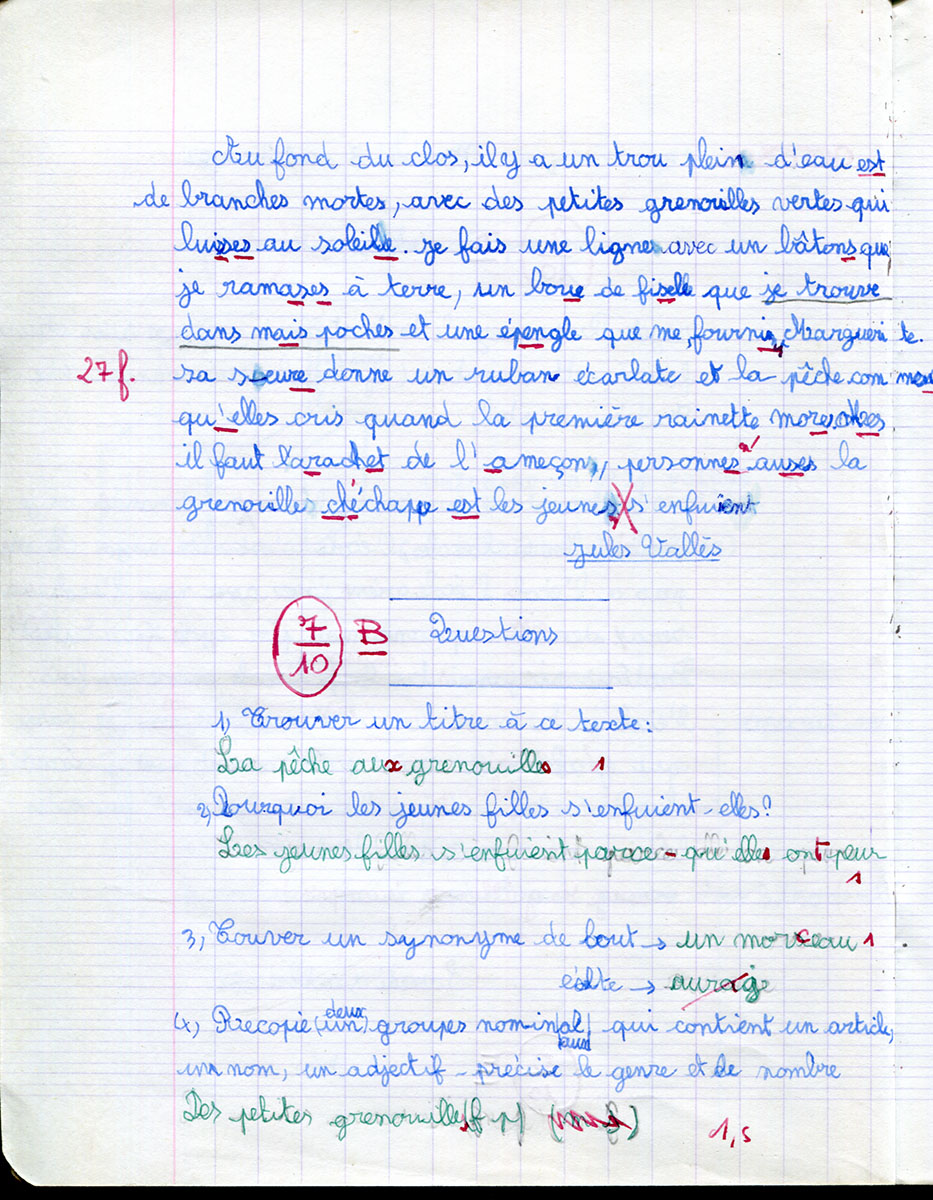 Au fond du clos, il y a un trou plein d'eau est
de branches mortes, avec des petites grenouilles vertes qui
luisses au soleille. je fais une ligne avec un bâtons que
je ramases à terre, un boue de fiselle que je trouve
dans mais poches et une épengle que me fournis Margueri te.
sa seure donne un ruban écarlate et la pêche com mence
qu'elles cris quand la première rainette
il faut l'arachet de l'ameçon, personnes auses la
grenouilles chéchappe est les jeunes s'enfuient
Jules Vallès
27 f.
7/10 B Questions
1, Trouver un titre à ce texte:
La pêche aux grenouilles 1
2, Pourquoi les jeunes filles s'enfuient-elles?
Les jeunes filles s'enfuient parce-qu'elles ont peur
1
3, Touver un synonyme de bout → un morceau 1
→
4, Recopie (un) deux groupes nominal aux qui contient un article,
un nom, un adjectif - précise le genre et le nombre
Des petites grenouilles (f p)
1,5